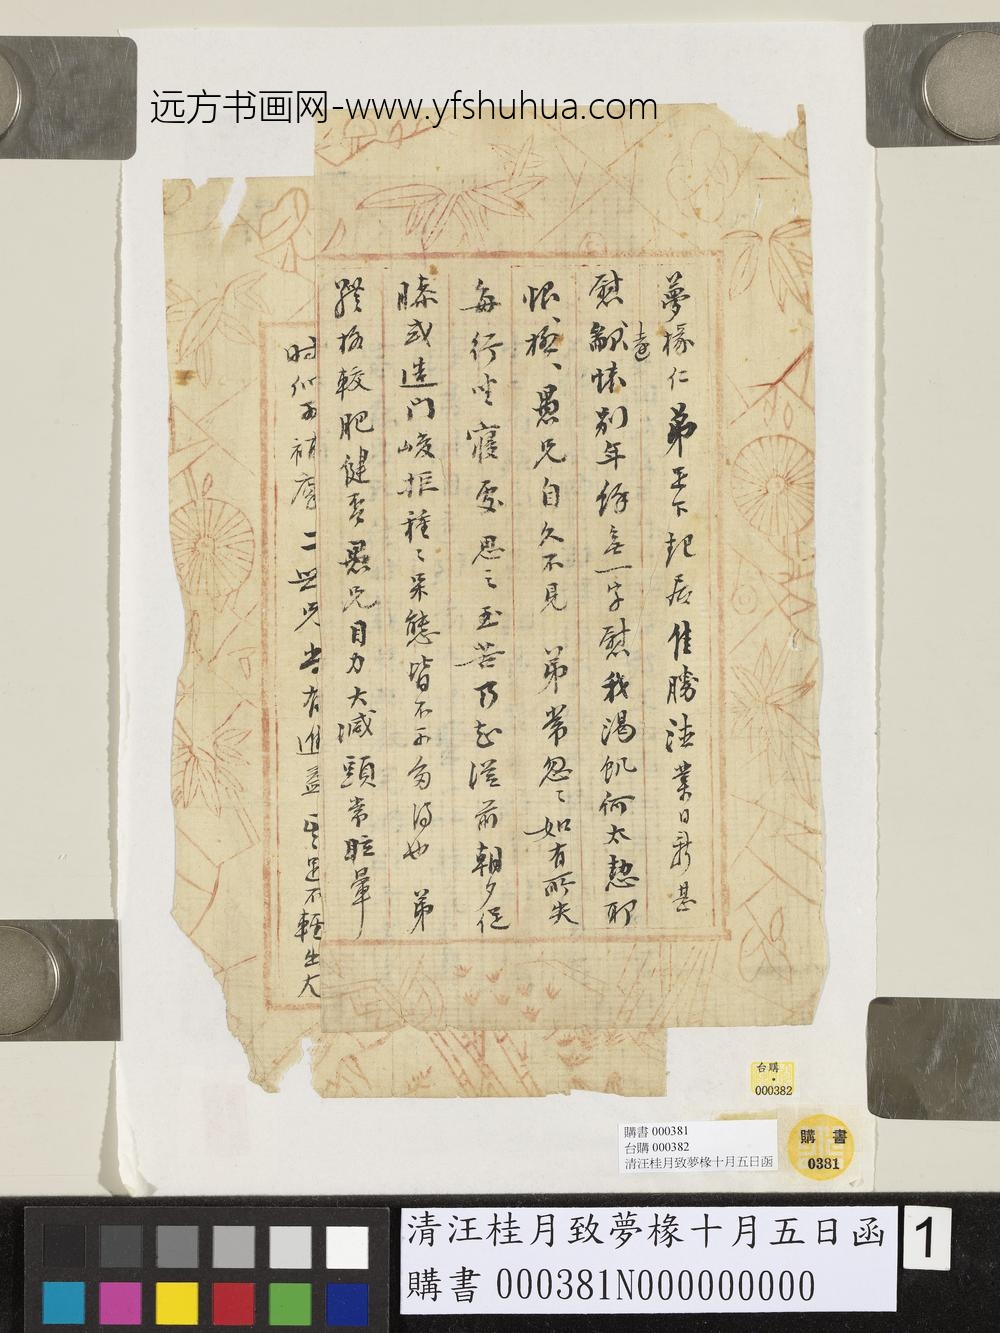 远方书画网-www.yfshuhua.com
夢椽仁弟足下起居佳勝法業日新甚
慰馳懷別年餘無一字慰我渴飢何太愸耶
遠
恨、極、愚兄自久不見弟常忽、如有所失
每行坐寢處思之至苦乃知從前朝夕促
膝或造門峻拒種、呆態皆不可多得也弟
體格較肥健否愚兄目力大減頭常眩暈
時似可補 二世兄當有進益 足不輕出大
台購
000382
購書 000381
台購 000382
清汪桂月致夢椽十月五日函
購書
0381
清汪桂月致夢椽十月五日函
購書 000381N000000000
1